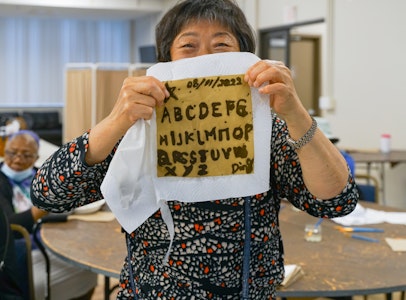 08/11/2022
ABCDEFG
HIJKLMNOP
QRSTUVW
XYZ